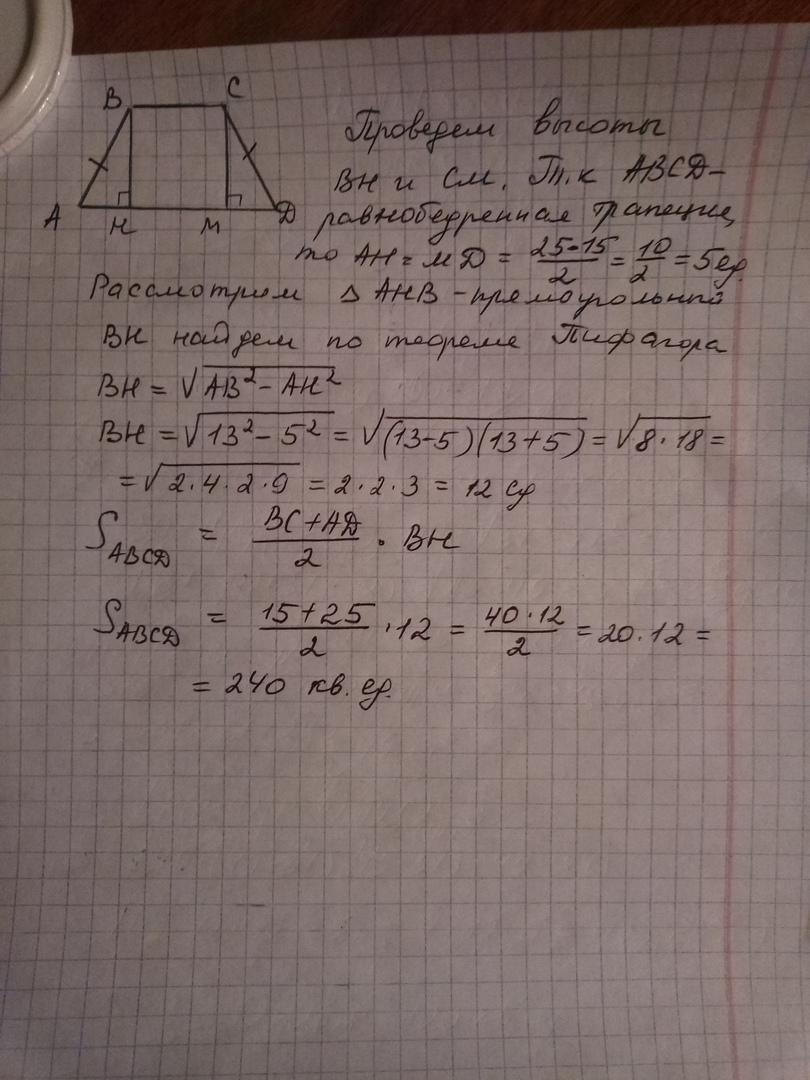 B C
A H M D
Проведем высоты
BH и CM. Т.к ABCD –
равнобедренная трапеция,
то AH = MD = (25-15)/2 = 10/2 = 5 ед.
Рассмотрим Δ AHB – прямоугольный
BH найдем по теореме Пифагора
BH = √(AB² – AH²)
BH = √(13² – 5²) = √((13-5)(13+5)) = √(8·18) =
= √(2·4·2·9) = 2·2·3 = 12 ед
S_ABCD = (BC+AD)/2 · BH
S_ABCD = (15+25)/2 · 12 = (40·12)/2 = 20·12 =
= 240 кв. ед.